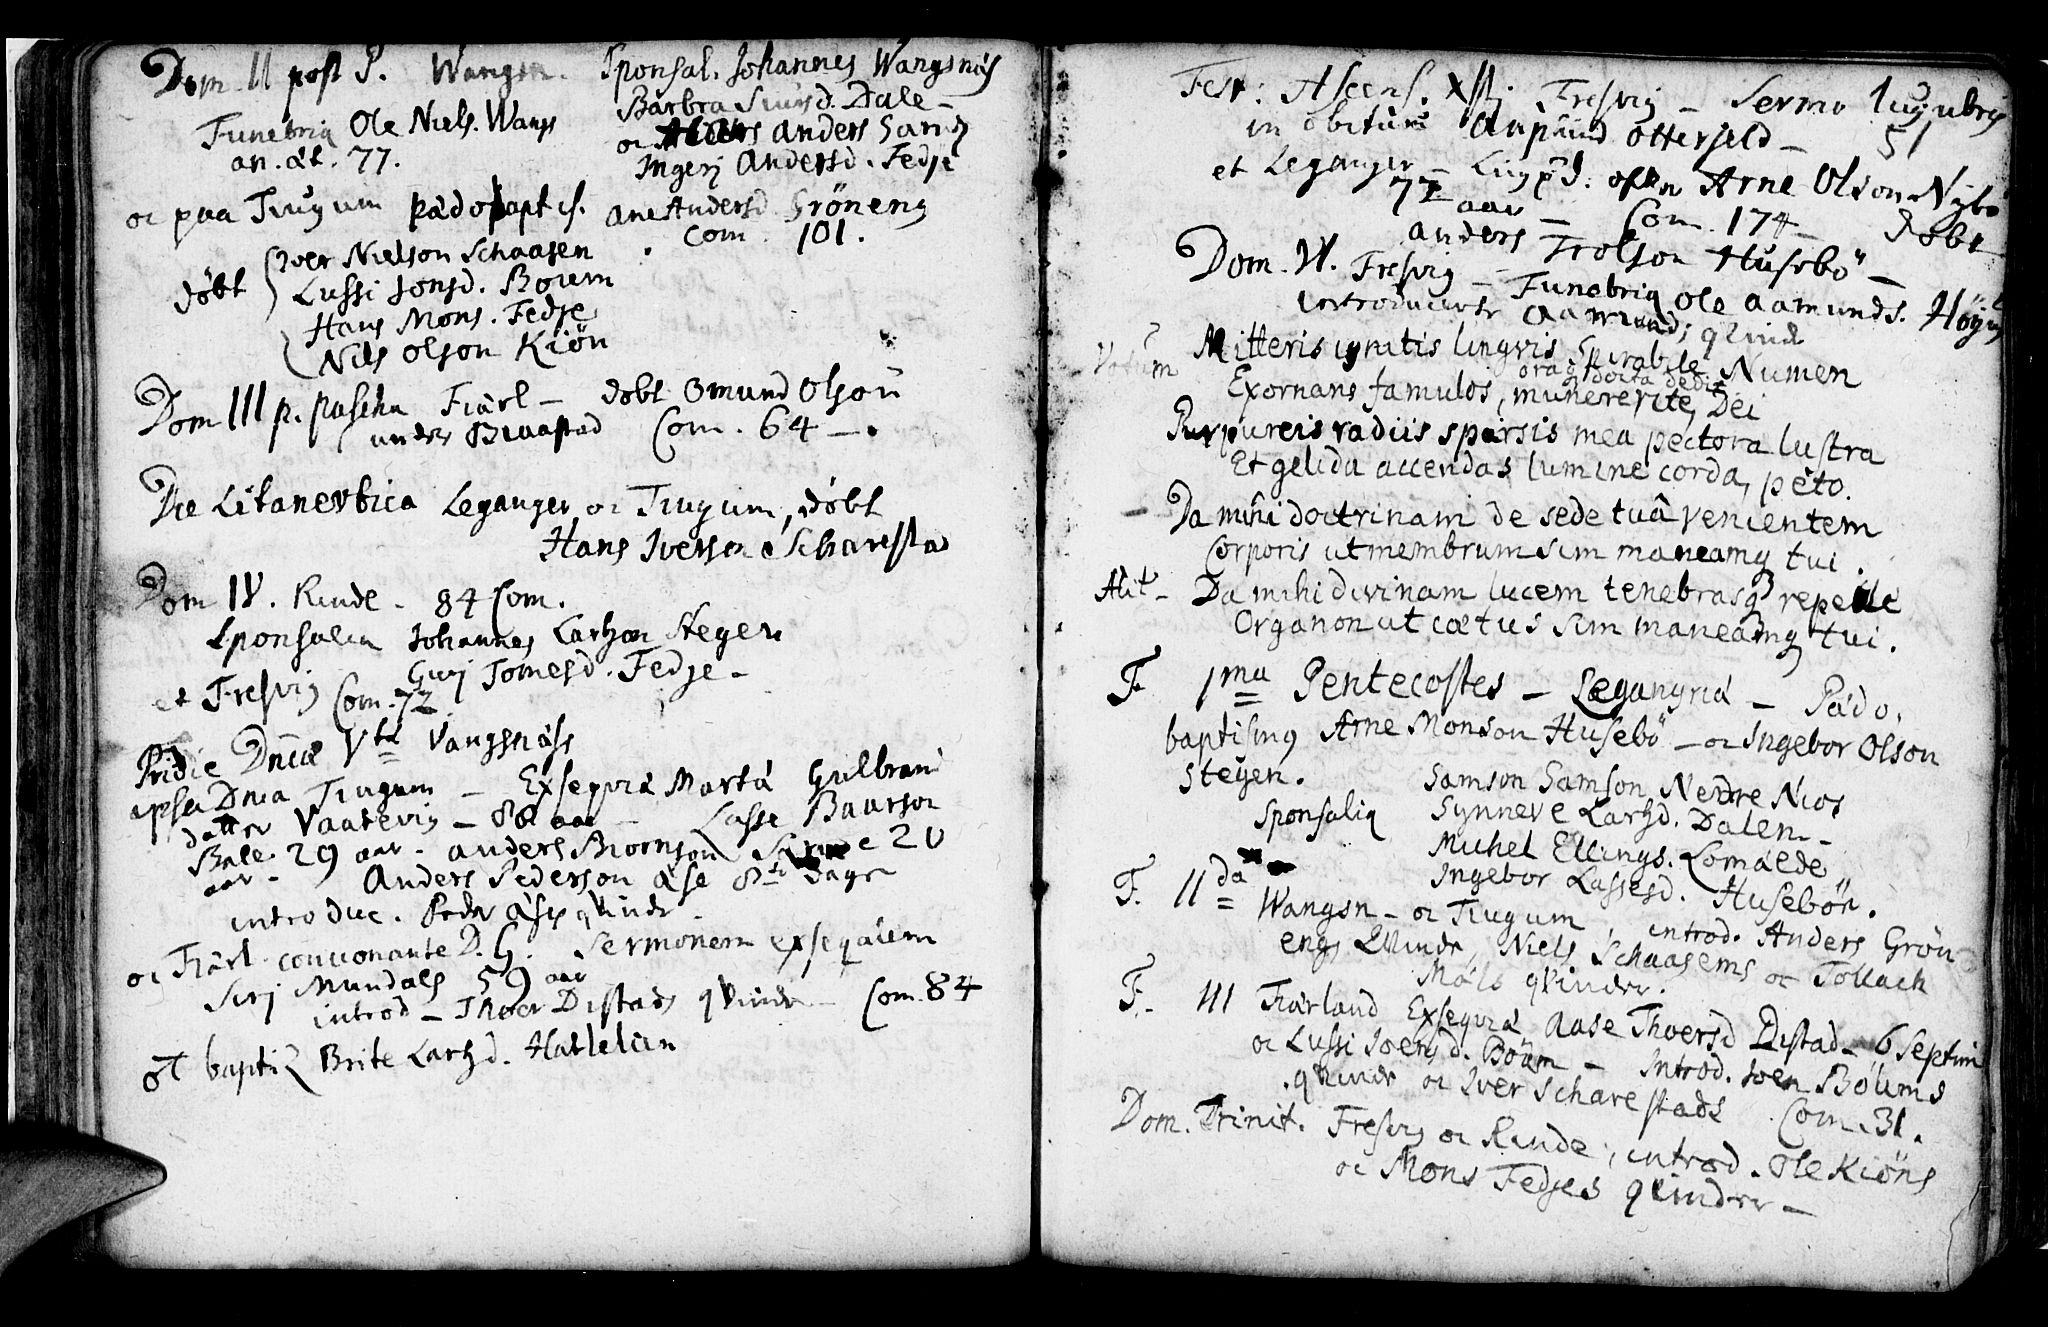 Dom II post P. Wangsn.
Funebria Ole Niels. Wangs
an. æt. 77.
Sponsal. Johannes Wangsnæs
Barbra Siursd. Dale -
oc Anders Sand
Ingerj Andersd. Fedje
oc paa Tiugum pædobaptis.
Ane Andersd Gröneng
Com. 101.
döbt Iver Nielson Schaasen
Lussi Jonsd. Böum
Hans Mons. Fedje
Nils Olson Kiön
Dom III p. pascha Fiärl - döbt Omund Olson
Com. 64 -.
Die Litanevtica Leganger oc Tiugum, döbt
Hans Iverson Scharestad
Dom IV. Rinde - 84 Com.
Sponsalia Johannes Larsson Stegen
Gurj Tomesd. Fedje -
et Fresvig Com. 72
Pridie Dnicæ Vtæ Vangsnæss
ipsa Dnica Tiugum - Exseqviæ Marta Gulbrand
datter Vaatevig - 88 aar - Lasse Baarson
Bale. 29 aar - Anders Biornson 20
aar - Anders Pederson Ase 8te dage
introduc. Peder Ases qvinde -
oc Fiärl. concionante D. G. Sermonem exseqvium
Siri Mundals 59 aar
introd - Thoer Distads qvinde - Com. 84
et baptiz Brite Larsd. Hatlelien
Fest: Ascens. Xsti Fresvig - Sermo lugubris
in obitum Anpund Otterjeld - 51
et Leganger - Arne Olson Nybö
77 aar - Com. 174 - döbt
anders Trolson Husebö -
Dom. VI. Fresvig - Funebria Ole Aamunds. Höyum
introducerte Aamunds qvinde
Votum Mitteris ignitis lingvis Spirabile Numen
ora docta dedit
Exornans famulos, munere rite, Dei
Purpureis radiis sparsis mea pectora lustra
Et gelida accendas lumine corda, peto.
- Da mihi doctrinam de sede tuâ venientem
Corporis ut membrum sim maneamq tui.
Alit - Da mihi divinam lucem tenebrasq repelle
Organon ut cætus sim maneamq tui.
F. 1ma Pentecostes - Legangriæ - Pædo.
baptismq Arne Monson Husebö - oc Ingebor Olson
Stegen.
Samson Samson Nedre Nios
Sponsalia Synneve Larsd. Dalen -
Michel Ellings. Lomälde
Ingebor Lassesd. Husebön.
F. IIda Wangsn - oc Tiugum, introd. Anders Grön
engs Qvinde, Niels Schaasens oc Tollach
Mäls qvinder.
F. III Fiärland Exseqviæ Aase Thoersd Distad - 6 Septim
oc Lussi Joensd. Böum - Introd. Joen Böums
qvinde oc Iver Scharestads Com. 31.
Dom. Trinit. Fresvig oc Rinde, introd. Ole Kiöns
oc Mons Fedjes qvinder -